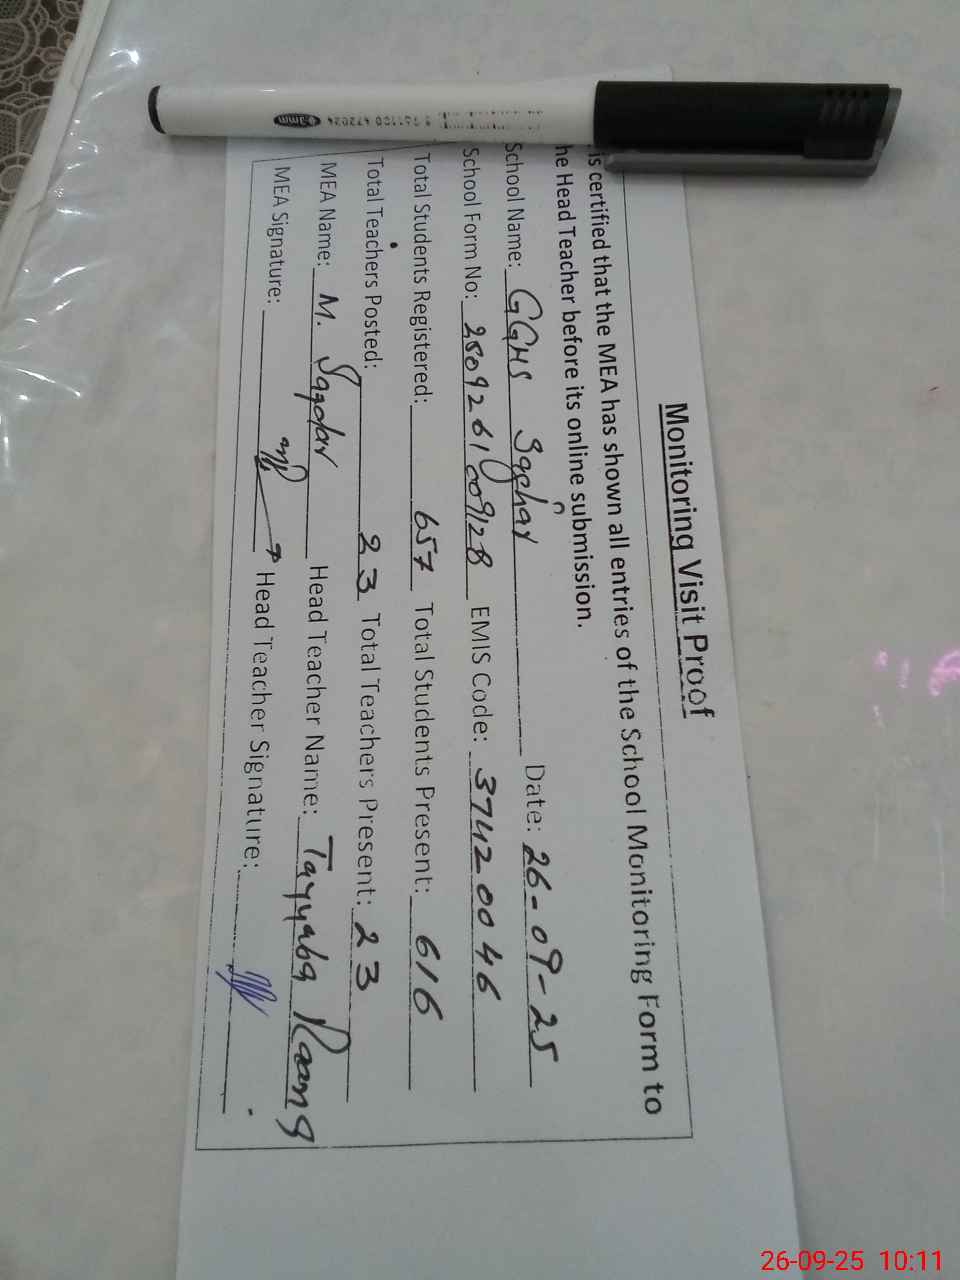 Monitoring Visit Proof
is certified that the MEA has shown all entries of the School Monitoring Form to
he Head Teacher before its online submission.
School Name: GGHS Saghar Date: 26-09-25
School Form No: 2509261009128 EMIS Code: 37420046
Total Students Registered: 657 Total Students Present: 616
Total Teachers Posted: 23 Total Teachers Present: 23
MEA Name: M. Safdar Head Teacher Name: Tayyaba
MEA Signature: Head Teacher Signature:
26-09-25 10:11